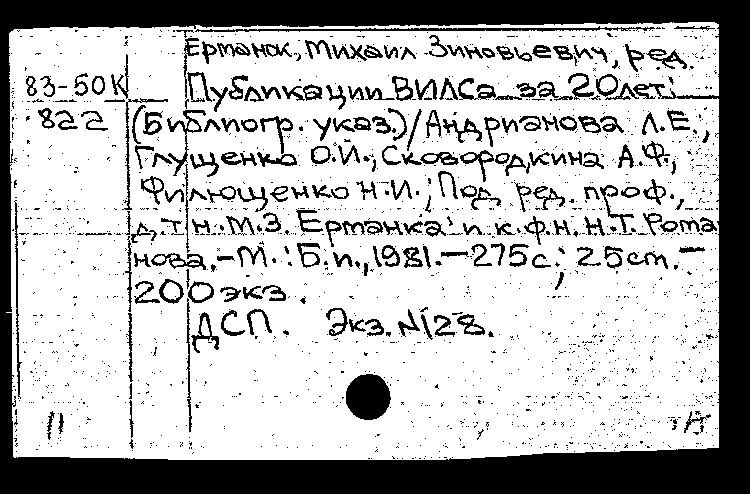 Ерманок, Михаил Зиновьевич, ред.
83-50К Публикации ВИЛСа за 20 лет:
822 (Библиогр. указ.)/Андрианова Л.Е.,
Глущенко О.Й.; Сковородкина А.Ф.,
Филющенко Н.И.; Под ред. проф.,
д.т.н. М.З. Ерманка и к.ф.н. Н.Т. Рома
нова.-М.: Б.и., 1981.-275с.; 25cm.-
200 экз.
ДСП. Экз. N128.
11